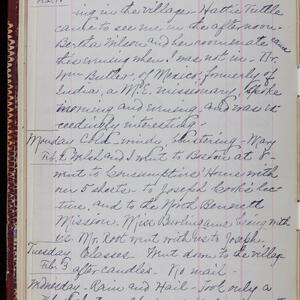 ing in the village. Hattie Tuttle
came to see me in the afternoon.
Bertha Wilson and her roommate and
this evening when I was not in. Dr.
Wm Butler, of Mexico, formerly of
India, a M.E. missionary, spoke
morning and evening, and was ex
ceedingly interesting.
Monday Cold - windy, blustering - May
Feb. and I went to Boston at 8-
went to Consumptives' Home with
her 5 shester to Joseph Cook's lec
ture, and to the North Bennett
Mission. Miss with
us. Mr. Root went with us to Joseph.
Tuesday Classes. Went down to the village
Feb. 3 after candles. No mail.
Wednesday - Rain and Hail - Took only a